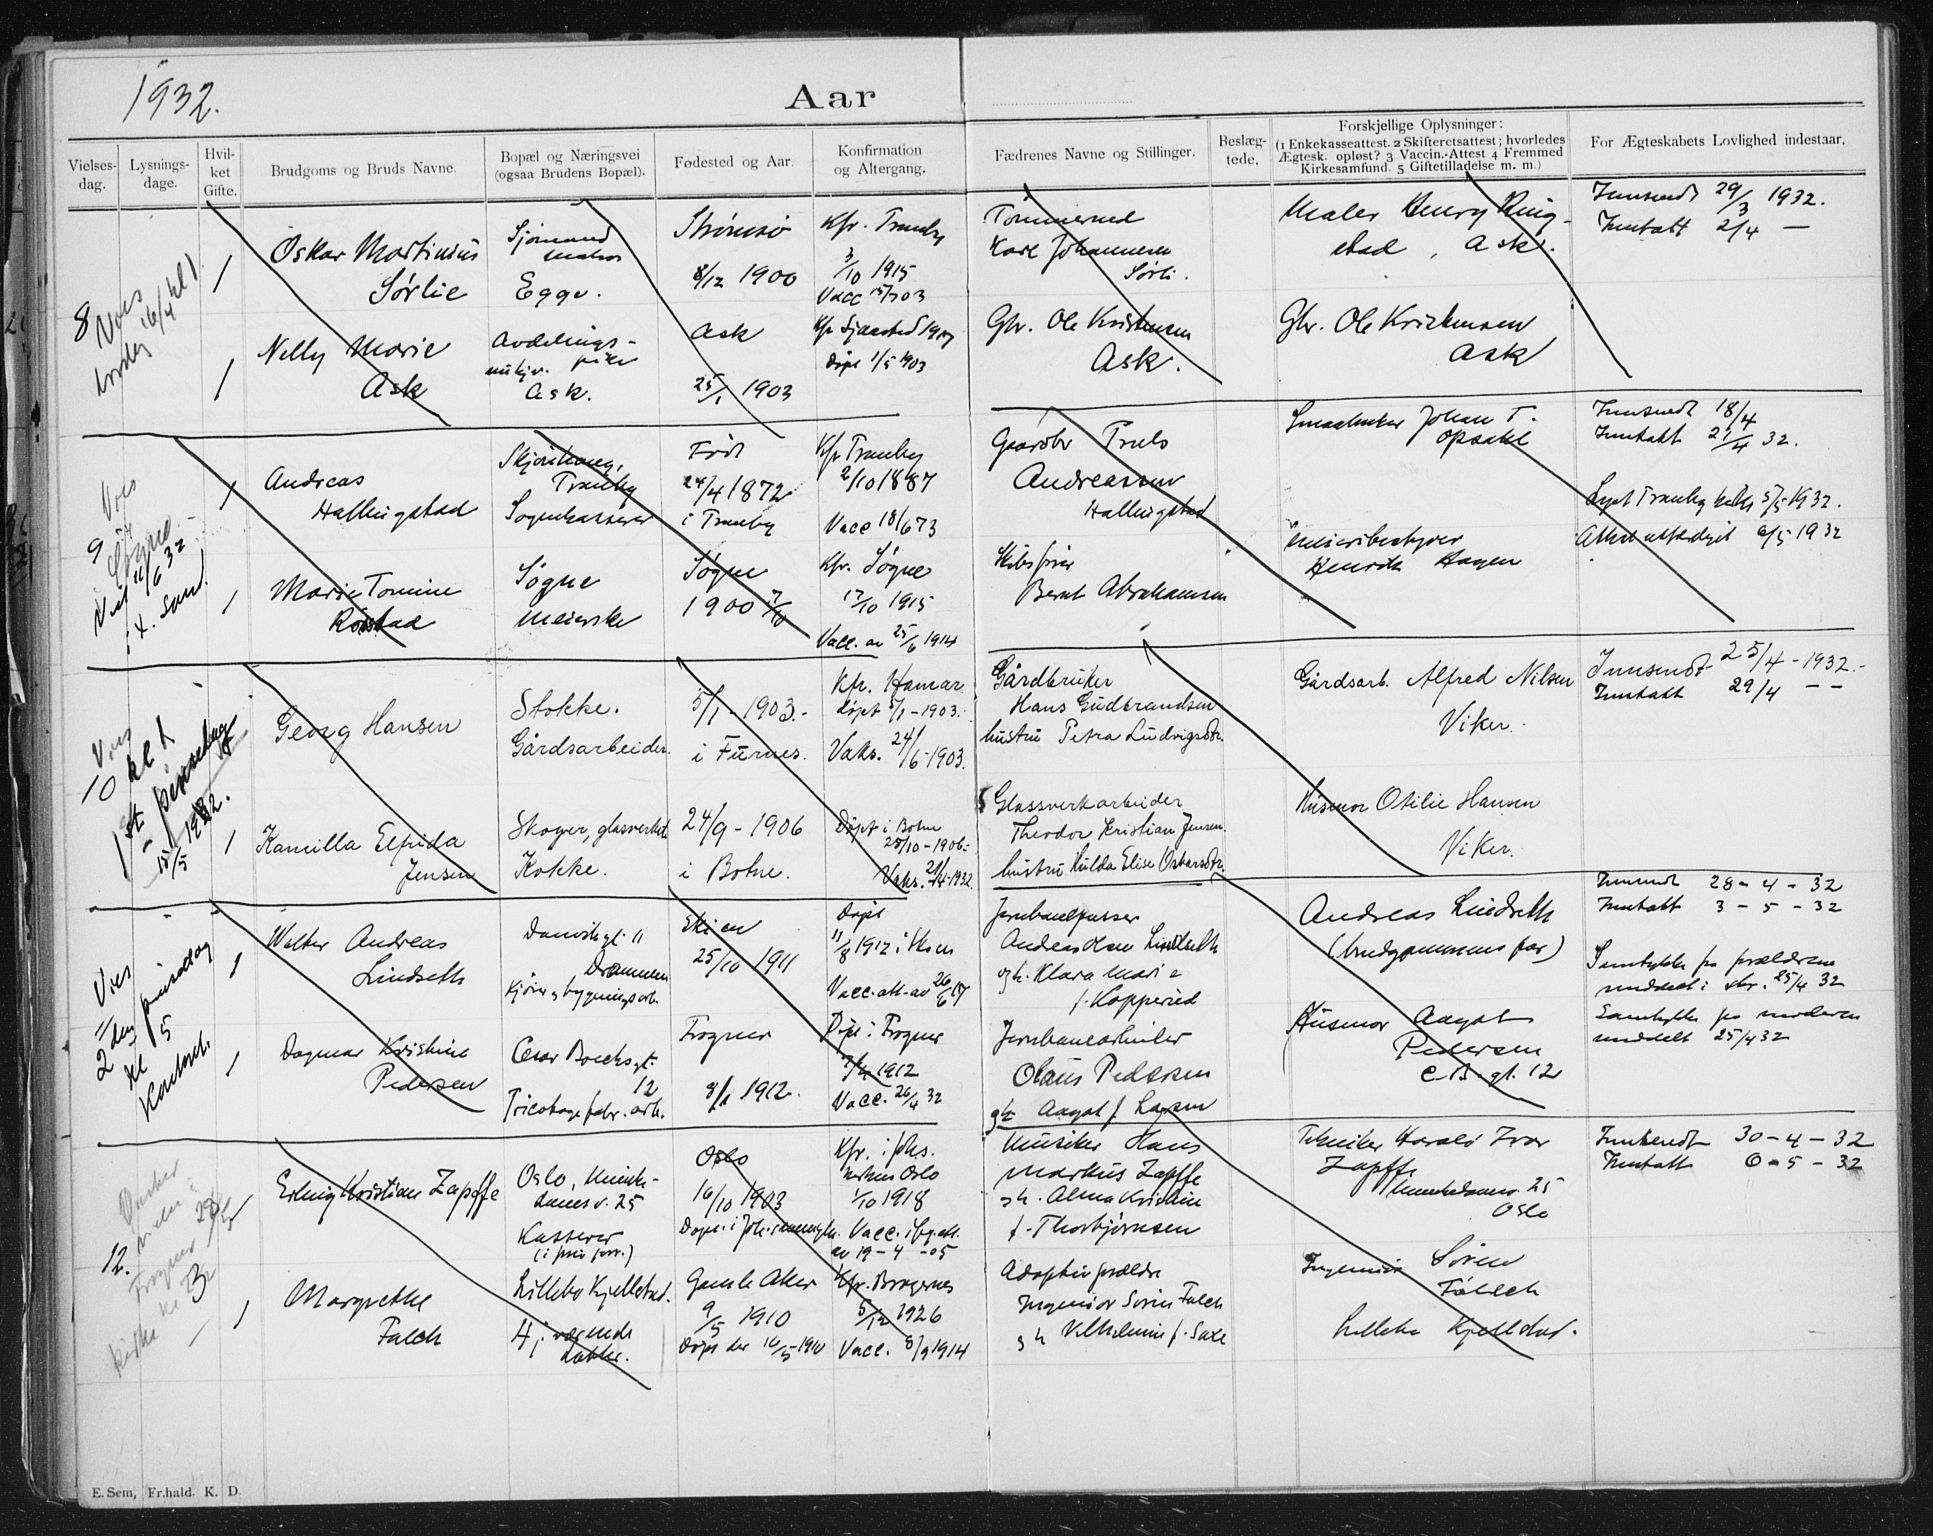 1932.
Aar
Vielses-
dag.
Lysnings-
dage.
Hvil-
ket
Gifte.
Brudgoms og Bruds Navne.
Bopæl og Næringsvei
(ogsaa Brudens Bopæl).
Fødested og Aar.
Konfirmation
og Altergang.
Fædrenes Navne og Stillinger.
Beslæg-
tede.
Forskjellige Oplysninger:
(1 Enkekasseattest. 2 Skifteretsattest; hvorledes
Ægtesk. opløst? 3 Vaccin.-Attest 4 Fremmed
Kirkesamfund. 5 Giftetilladelse m. m.)
For Ægteskabets Lovlighed indestaar.
8
Vies
lørdag 16/4 kl 1.
Oskar Martinius
Sørlie
Sjømand
matros
Egge.
Strømsø
8/12 1900
Kfr. Tranby
3/10 1915
Tømmermd
Karl Johannesen
Sørli.
Maler Henry Ring-
stad, Ask.
Innsendt 29/3 1932.
Inntatt 2/4 —
Nelly Marie
Ask
Avdelings-
pike
Ask.
Ask
25/1 1903
Døpt 1/5 1903
Gbr. Ole Kristensen
Ask.
Gbr. Ole Kristensen
Ask
9
Vies
Søgne
11/6 32
Andreas
Hallingstad
Tranby
Sognekasserer
Født
24/4 1872
i Tranby
Kfr Tranby
2/10 1887
Vacc 18/6 73
Gaardbr Truls
Andreassen
Hallingstad
Smaabruker Johan T.
Opsahl
Innsendt 18/4
Inntatt 21/4 32.
Lyst Tranby kirke 5/5 1932.
Attest utferdiget 6/5 1932
Marie Tomine
Søgne
Meierske
Søgne
1900 7/10
Kfr. Søgne
17/10 1915
Vacc. av 25/6 1914
Skibsfører
Bernt Abrahamsen
Meieribestyrer
Henrik Hagen
10
Vies
kl 1
1st pinsedag
15/5 1932.
Georg Hansen
Stokke.
Gårdsarbeider.
5/1 - 1903.-
i Furnes.
Kfr. Hamar
døpt 5/1-1903.
Vaks. 24/6-1903.
Gårdbruker
Hans Gudbrandsen
hustru Petra Ludvigsdtr.
Gårdsarb. Alfred Nilsen
Viker.
Innsendt 25/4 - 1932.-
Inntatt 29/4 — —
Kamilla Elfrida
Jensen
Skoger, glasverket
Kokke.
24/9 - 1906
i Botne.
Døpt i Botne
25/10-1906-
Vaks. 21/4-1932.
Glassverkarbeider
Theodor Kristian Jensen.
hustru Hulda Elise Oskarsdtr.
Husmor Otilie Hansen
Viker.
11
Vies
2 dag pinsedag
kl 5
Kontoret.
Walter Andreas
Lindseth
Danvikgt. 11
Drammen
Skien
25/10 1911
Døpt
11/8 1912 i Skien
Vacc.att. av 26/6 17
Jernbanepusser
Andreas Olsen Lindseth
gh. Klara Marie
f. Kopperud
Andreas Lindseth
(brudgommens far)
Innsendt 28-4-32
Inntatt 3-5-32
Samtykke fra forældrene
meddelt i skr. 25/4 32
Dagmar Kristine
Pedersen
Cesar Boecks gt.
12
Tricotage fabr. arb.
Frogner
8/1 1912.
Døpt i Frogner
7/4 1912
Vacc. 26/4 32
Jernbanearbeider
Olaus Pedersen
gh. Aagot f. Larsen
Husmor Aagot
Pedersen
C. B. gt. 12
Samtykke fra moderen
meddelt 25/4 32
12.
Ønsker
vielse i
Frogner
kirke
kl 3
Erling Kristian Zapffe
Oslo, Munke-
damsv. 25
Kasserer
(i priv. forr.)
Oslo
16/10 1903
Kfr. i Johs.
kirken Oslo
1/10 1918
Vacc. ifg. att.
av 19-4-05
Musiker Hans
Markus Zapffe
gh. Alma Kristine
f. Thorbjørnsen
Tekniker Harald Ivar
Zapffe
Munkedamsv. 25
Oslo
Innsendt 30-4-32
Inntatt 6-5-32
Margrethe
Falch
Lillebo Kjellstad.
Hj. værende
datter.
Gamle Aker
9/5 1910
Døpt der 16/5-1910
Kfr. Bragernes
5/12 1926
Vacc. 8/9 1914
Adoptivforældre
Ingeniør Søren Falch
gh Vilhelmine f. Saxe
Ingeniør Søren
Falch
Lillebo Kjellstad.
E. Sem, Fr.hald. K. D.